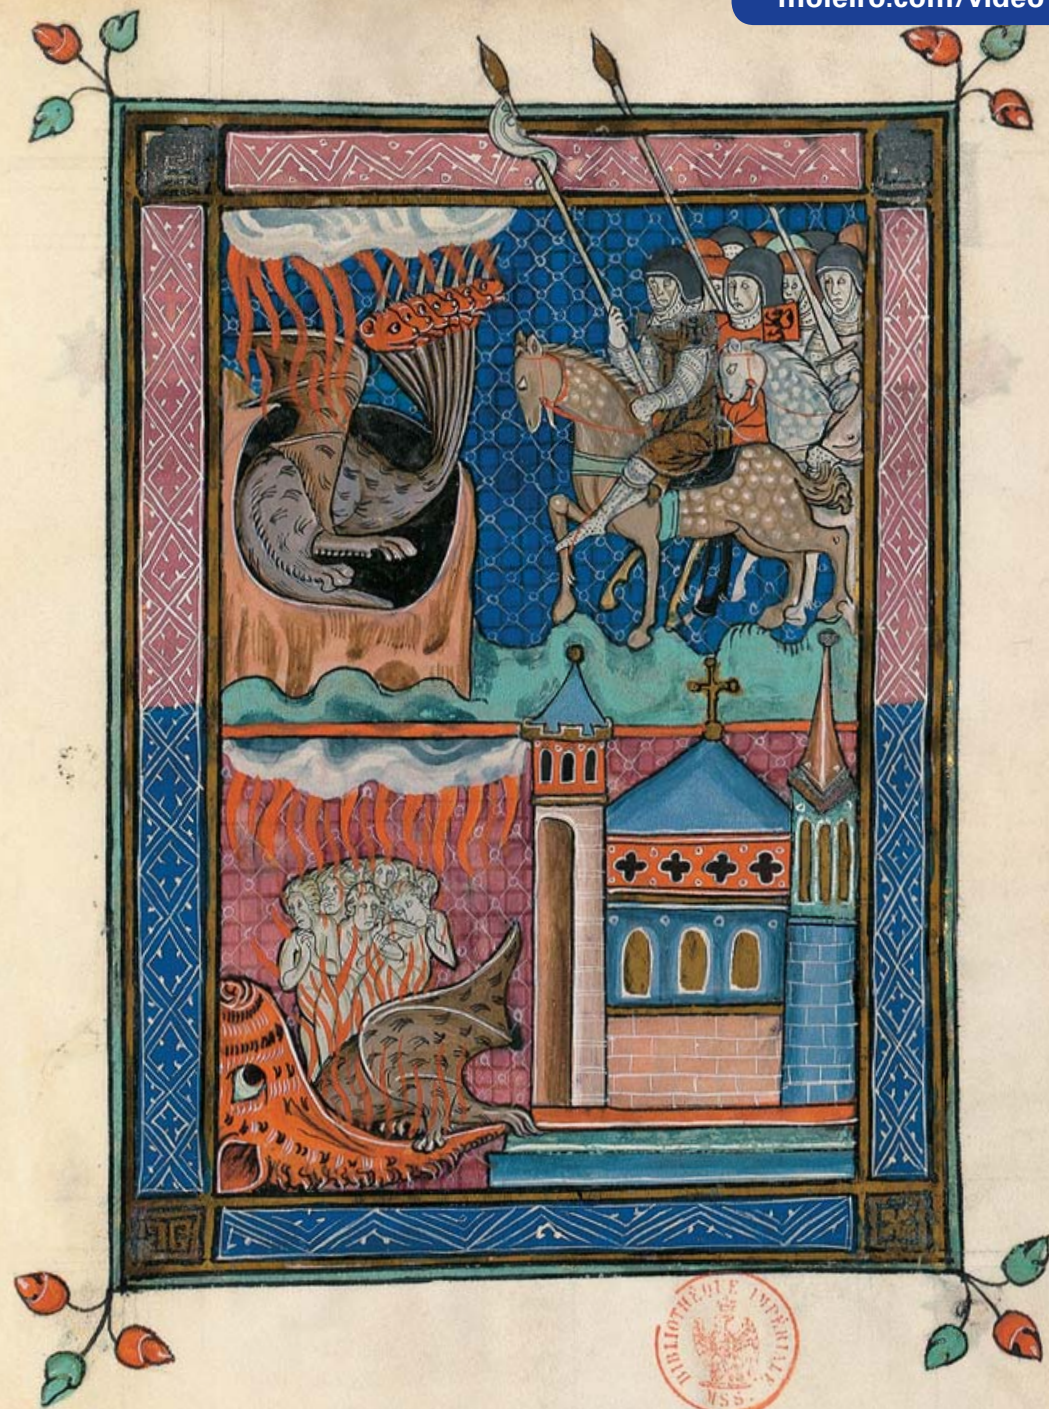 moleiro.com/video
BIBLIOTHÈQUE IMPÉRIALE
MSS.